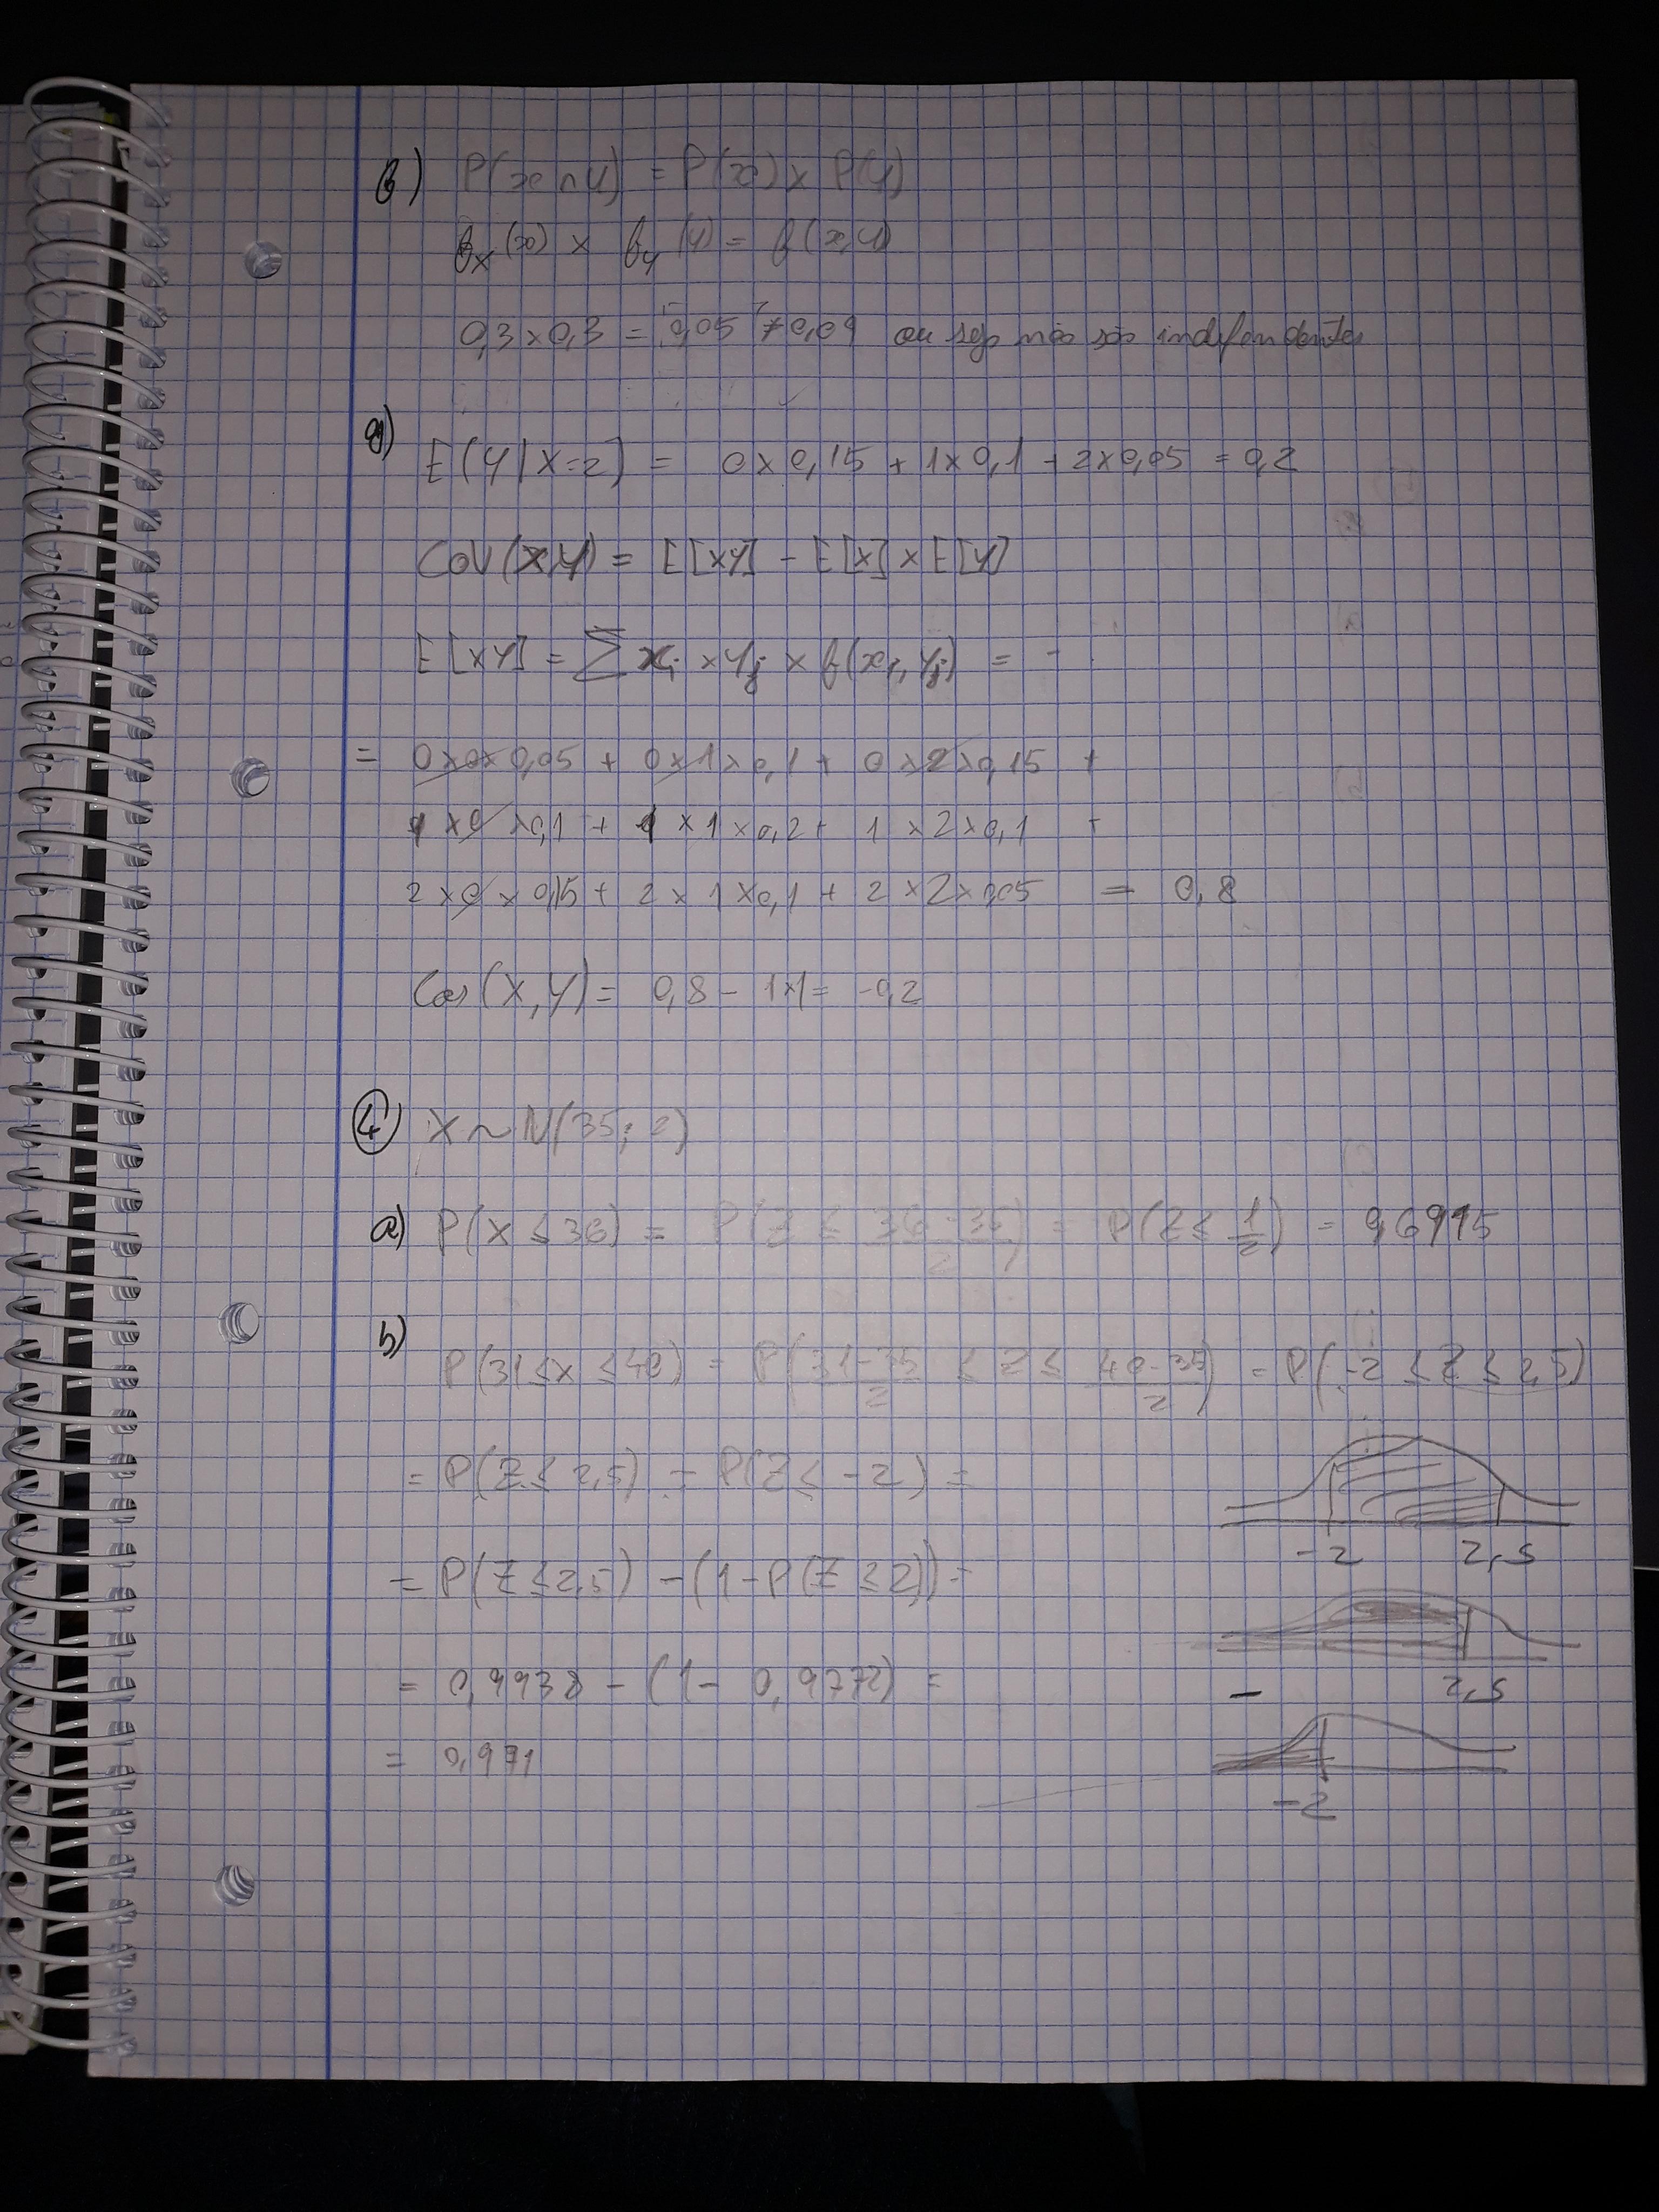 f) P(x∩y) = P(x) × P(y)
fx(x) × fy(y) = f(x,y)
0,3 × 0,3 = 0,05 ≠ 0,09 ou seja não são independentes
g)
E(Y|X=2) = 0×0,15 + 1×0,1 + 2×0,05 = 0,2
COV(X,Y) = E[XY] - E[X] × E[Y]
E[XY] = Σ xi × yj × f(xi, yj) =
= 0×0×0,05 + 0×1×0,1 + 0×2×0,15 +
1×0×0,1 + 1×1×0,2 + 1×2×0,1 +
2×0×0,15 + 2×1×0,1 + 2×2×0,05 = 0,8
Cov(X,Y) = 0,8 - 1×1 = -0,2
4 X~N(35; 2)
a) P(X≤36) = P(Z ≤ 36-35/2) = P(Z≤ 1/2) = 0,6915
b)
P(31≤x≤40) = P(31-35/2 ≤ Z ≤ 40-35/2) = P(-2 ≤ Z ≤ 2,5)
= P(Z≤2,5) - P(Z≤ -2) =
-2 2,5
= P(Z≤2,5) - (1-P(Z≤2)) =
= 0,9938 - (1- 0,9772) =
- 2,5
= 0,971
-2